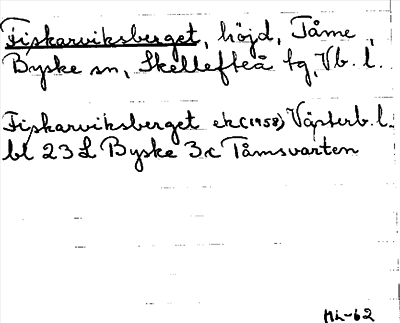 Fiskarviksberget, höjd, Tåme,
Byske sn, Skellefteå tg, Vb. l.
Fiskarviksberget ek(1958) Västerb. l.
bl 23 L Byske 3c Tåmsvarten
ML-62